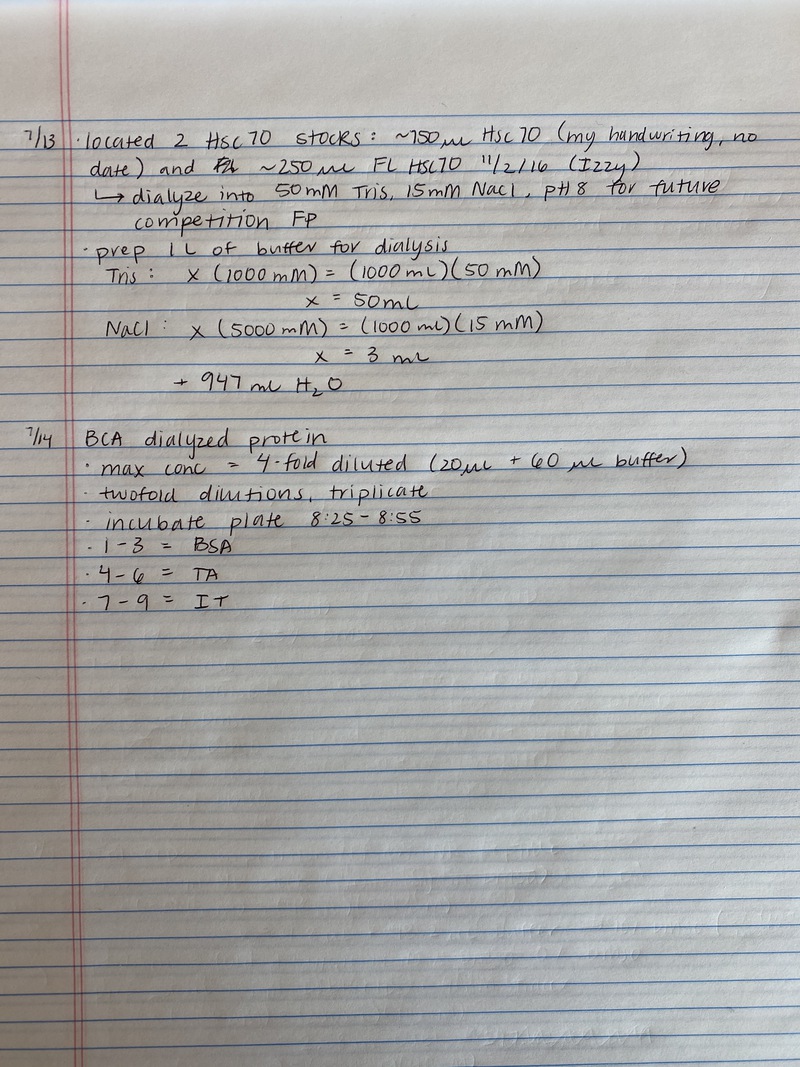 7/13 · located 2 Hsc70 stocks: ~750 µL Hsc70 (my handwriting, no
date) and ~250 µL FL Hsc70 11/2/16 (Izzy)
↳ dialyze into 50mM Tris, 15mM NaCl, pH 8 for future
competition FP
· prep 1 L of buffer for dialysis
Tris: x (1000 mM) = (1000 mL)(50 mM)
x = 50mL
NaCl: x (5000 mM) = (1000 mL)(15 mM)
x = 3 mL
+ 947 mL H₂O
7/14 BCA dialyzed protein
· max conc = 4-fold diluted (20µL + 60 µL buffer)
· twofold dilutions, triplicate
· incubate plate 8:25 - 8:55
· 1-3 = BSA
· 4-6 = TA
· 7-9 = IT